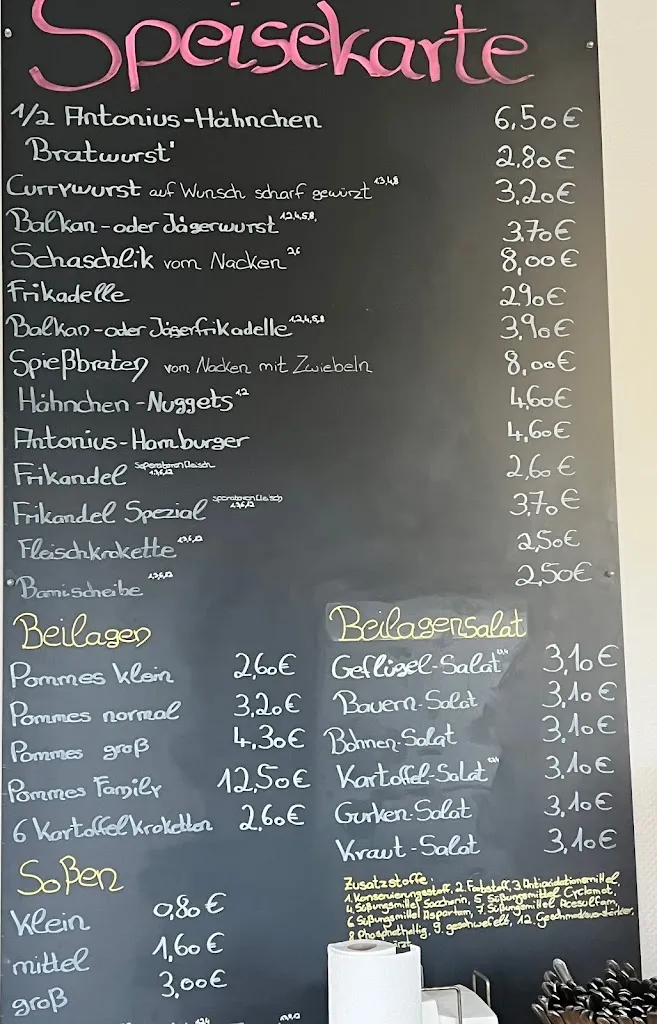 Speisekarte
1/2 Antonius-Hähnchen 6,50€
Bratwurst 2,80€
Currywurst auf Wunsch scharf gewürzt 1,3,4,8 3,20€
Balkan-oder Jägerwurst 1,2,4,5,8, 3,70€
Schaschlik vom Nacken 2,6 8,00€
Frikadelle 2,90€
Balkan-oder Jägerfrikadelle 1,2,4,5,8 3,90€
Spießbraten vom Nacken mit Zwiebeln 8,00€
Hähnchen-Nuggets 12 4,60€
Antonius-Hamburger 4,60€
Frikandel 2,60€
Frikandel Spezial 3,70€
Fleischkrokette 2,50€
Bamischeibe 2,50€
Beilagen
Pommes klein 2,60€
Pommes normal 3,20€
Pommes groß 4,30€
Pommes Family 12,50€
6 Kartoffelkroketten 2,60€
Soßen
klein 0,80€
mittel 1,60€
groß 3,00€
Beilagensalat
Geflügel-Salat 3,10€
Bauern-Salat 3,10€
Bohnen-Salat 3,10€
Kartoffel-Salat 3,10€
Gurken-Salat 3,10€
Kraut-Salat 3,10€
Zusatzstoffe:
1. Konservierungsstoff, 2. Farbstoff, 3. Antioxidationsmittel,
4. Süßungsmittel Saccharin, 5. Süßungsmittel Cyclamat,
6. Süßungsmittel Aspartam, 7. Süßungsmittel Acesulfam,
8. Phosphathaltig, 9. geschwefelt, 12. Geschmacksverstärker,